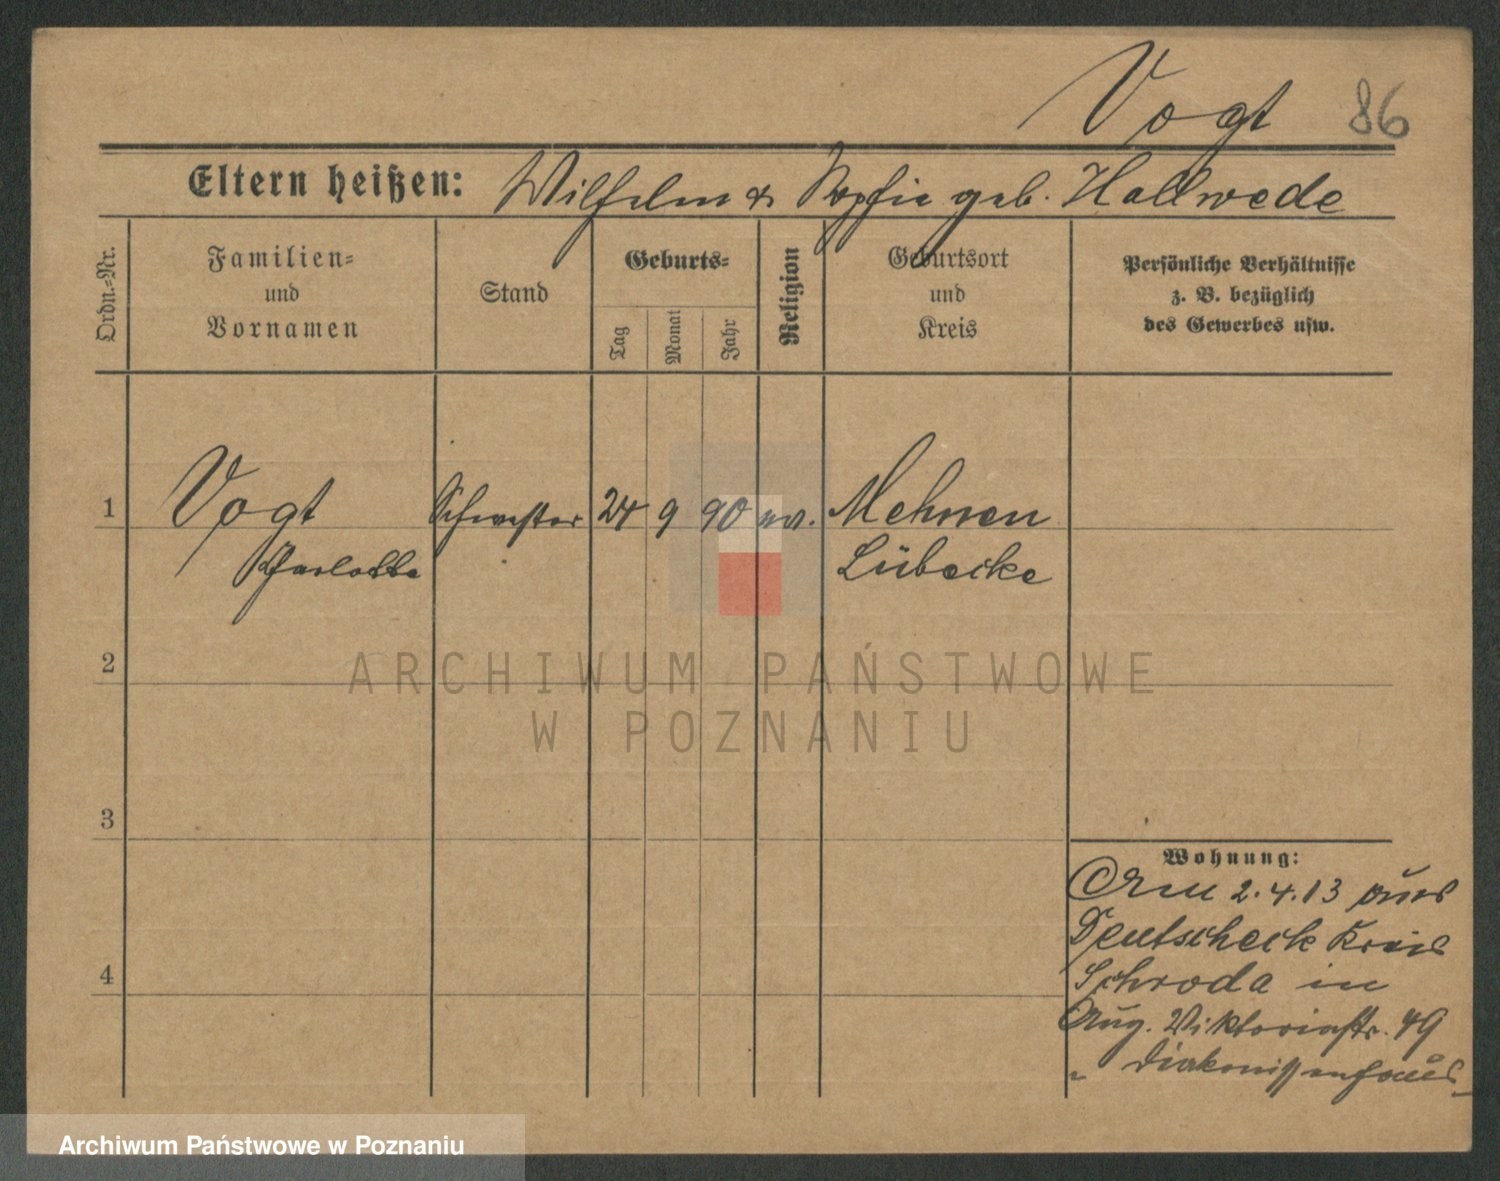 Vogt 86
Eltern heißen: Wilhelm & Sophie geb. Hallwede
Ordn.-Nr.
Familien-
und
Vornamen
Stand
Geburts-
Tag
Monat
Jahr
Religion
Geburtsort
und
Kreis
Persönliche Verhältnisse
z. B. bezüglich
des Gewerbes usw.
1 Vogt Schwester 24 9 90 ev. Mehnen
Charlotte Lübecke
2
ARCHIWUM PAŃSTWOWE
W POZNANIU
3
Wohnung:
Am 2.4.13 aus
Deutscheck Kreis
4 Schroda in
Aug. Viktoriastr. 49
" Diakonissenhaus
Archiwum Państwowe w Poznaniu